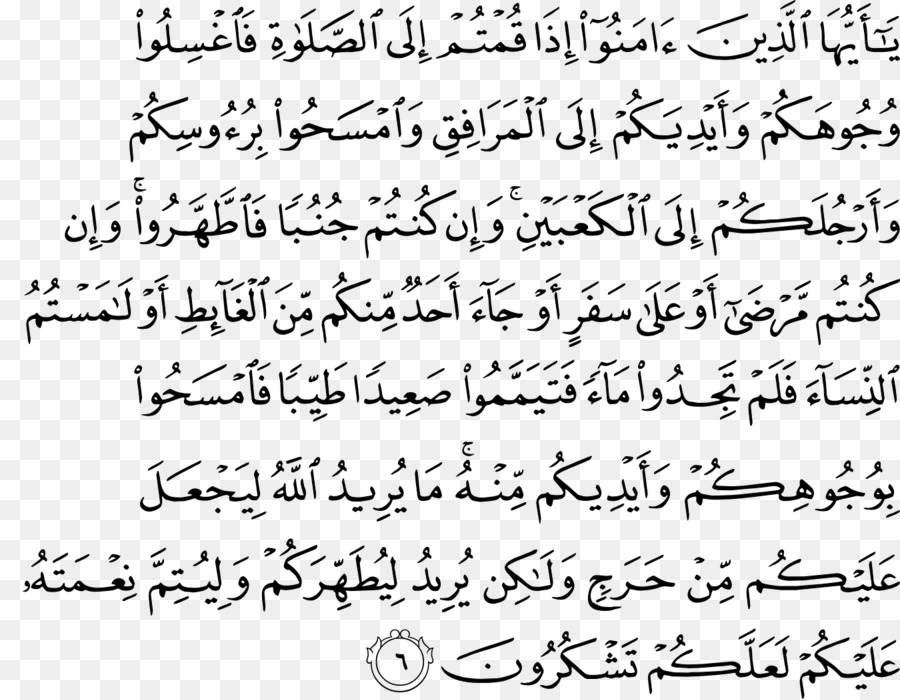 يَـٰٓأَيُّهَا ٱلَّذِينَ ءَامَنُوٓا۟ إِذَا قُمْتُمْ إِلَى ٱلصَّلَوٰةِ فَٱغْسِلُوا۟
وُجُوهَكُمْ وَأَيْدِيَكُمْ إِلَى ٱلْمَرَافِقِ وَٱمْسَحُوا۟ بِرُءُوسِكُمْ
وَأَرْجُلَكُمْ إِلَى ٱلْكَعْبَيْنِ ۚ وَإِن كُنتُمْ جُنُبًا فَٱطَّهَّرُوا۟ ۚ وَإِن
كُنتُم مَّرْضَىٰٓ أَوْ عَلَىٰ سَفَرٍ أَوْ جَآءَ أَحَدٌ مِّنكُم مِّنَ ٱلْغَآئِطِ أَوْ لَـٰمَسْتُمُ
ٱلنِّسَآءَ فَلَمْ تَجِدُوا۟ مَآءً فَتَيَمَّمُوا۟ صَعِيدًا طَيِّبًا فَٱمْسَحُوا۟
بِوُجُوهِكُمْ وَأَيْدِيكُم مِّنْهُ ۚ مَا يُرِيدُ ٱللَّهُ لِيَجْعَلَ
عَلَيْكُم مِّنْ حَرَجٍ وَلَـٰكِن يُرِيدُ لِيُطَهِّرَكُمْ وَلِيُتِمَّ نِعْمَتَهُۥ
عَلَيْكُمْ لَعَلَّكُمْ تَشْكُرُونَ ٦